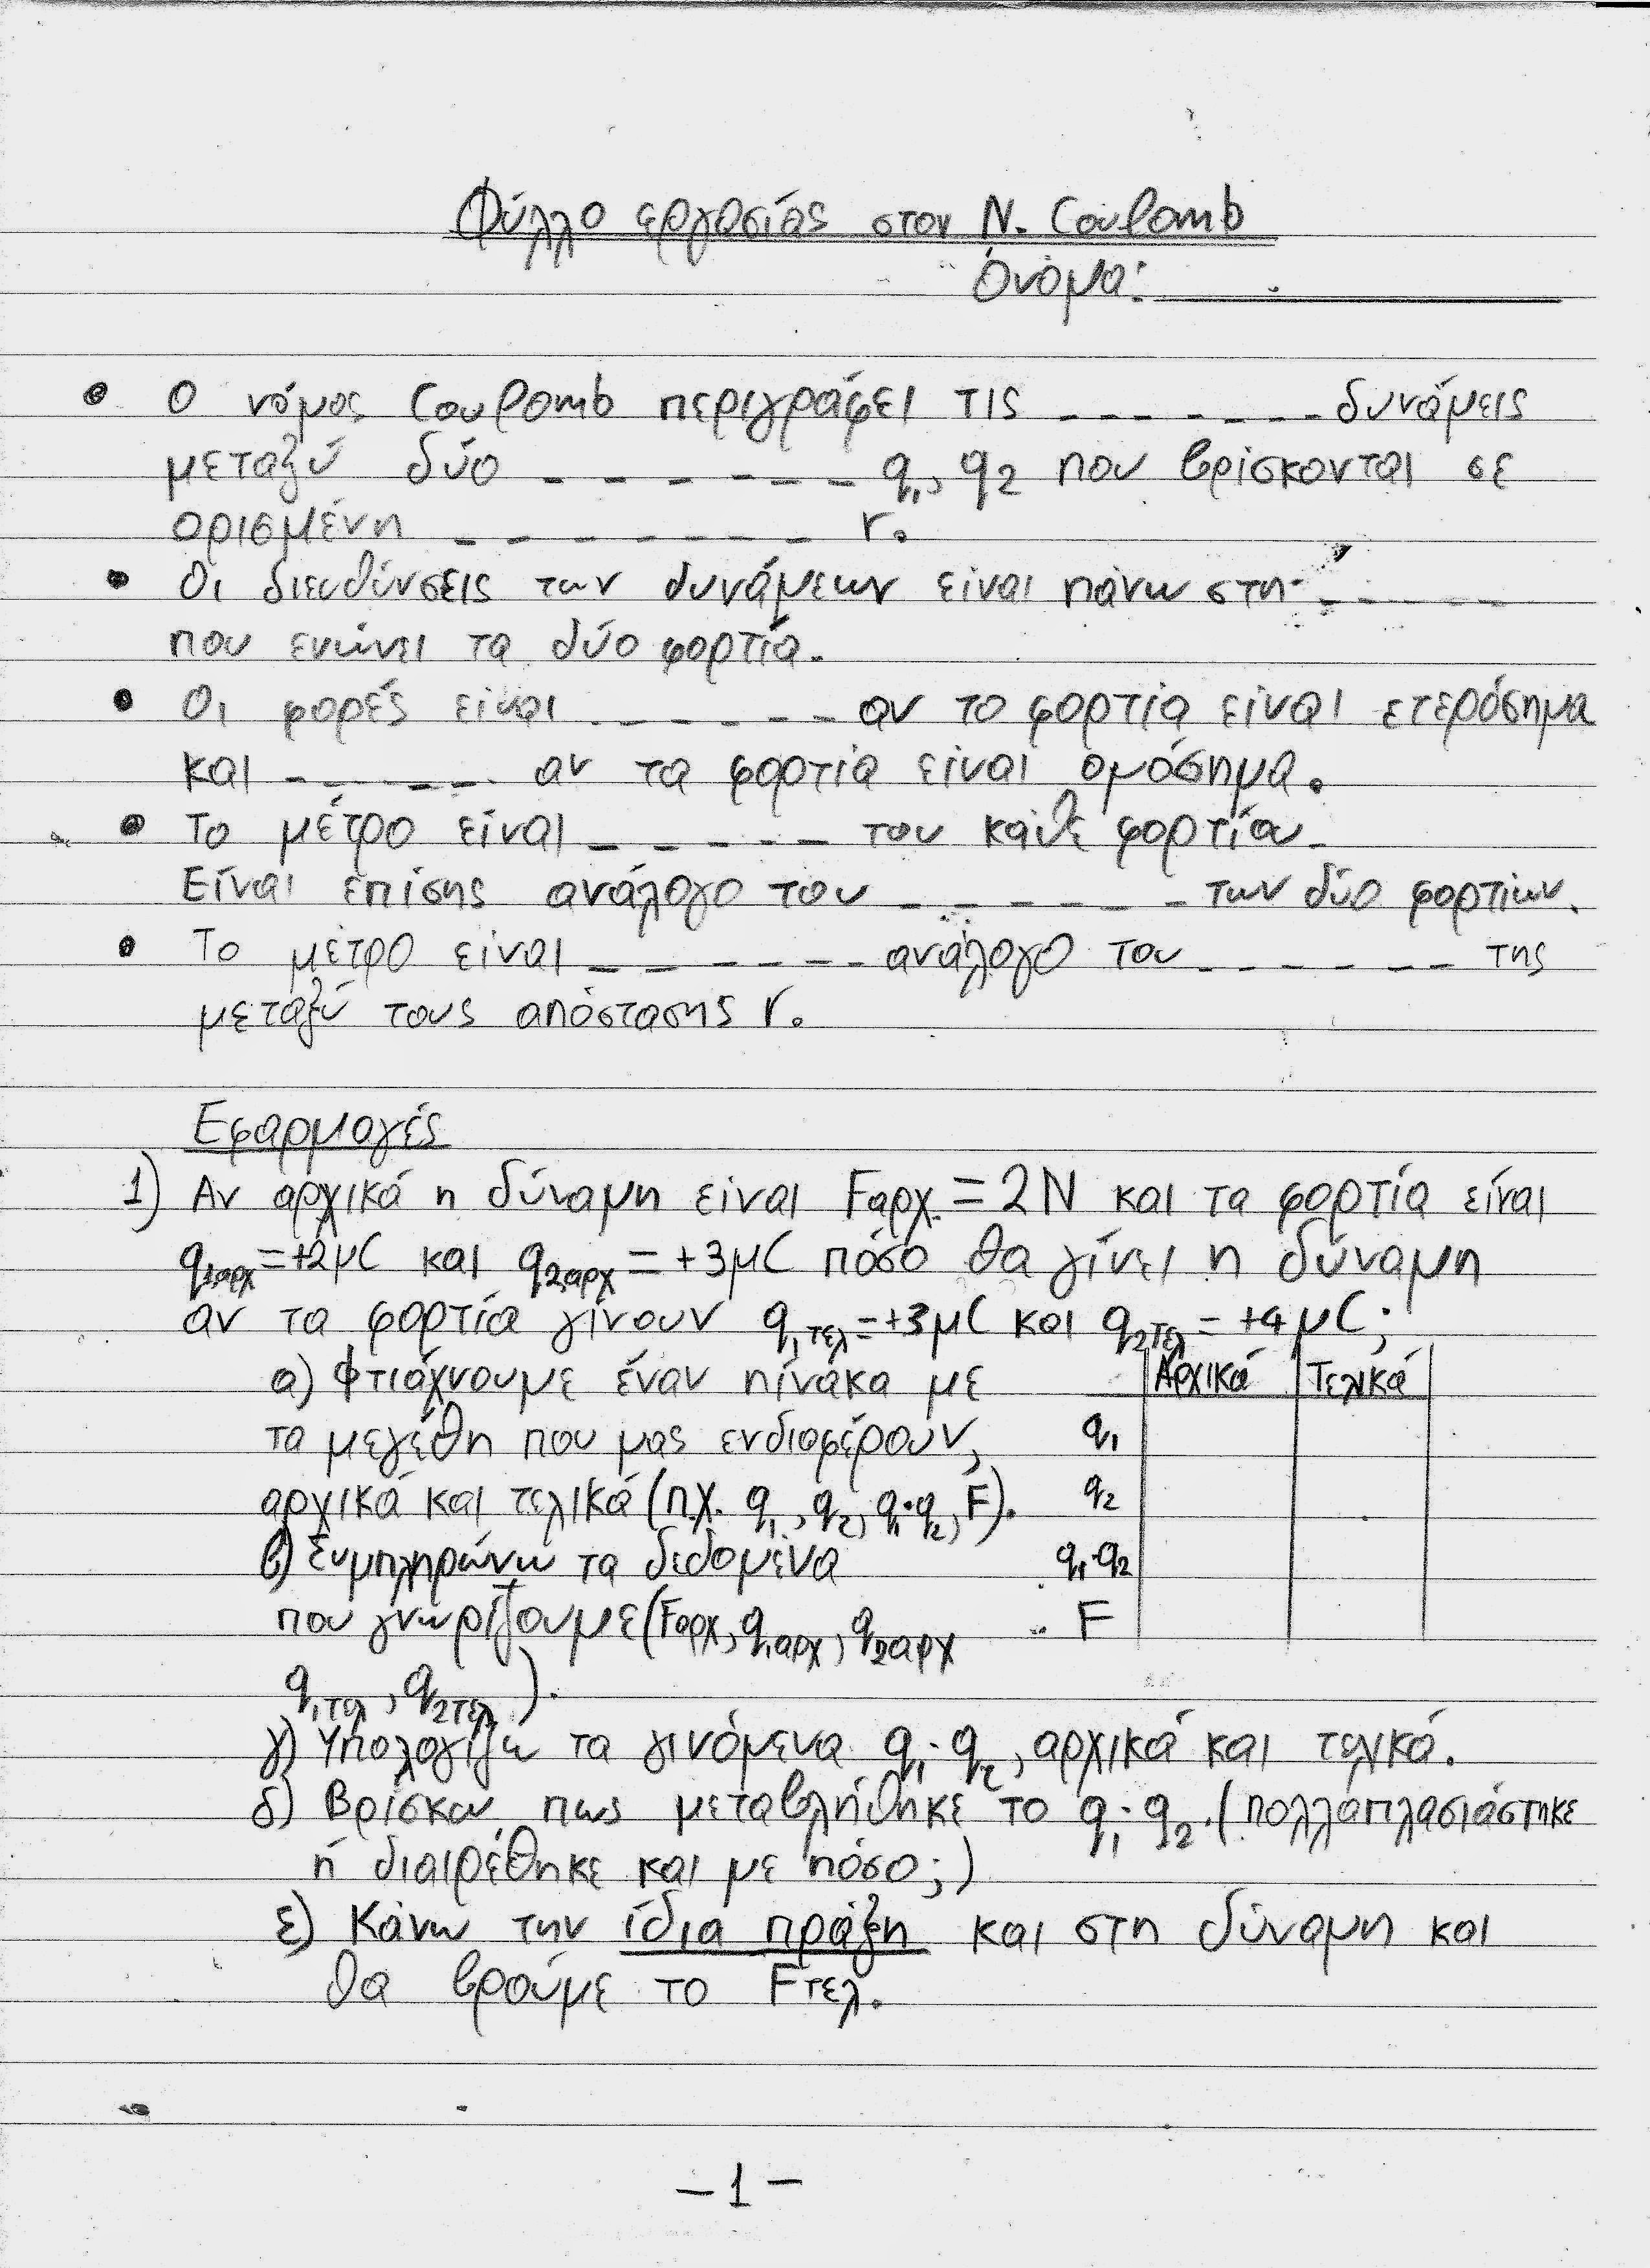 Φύλλο εργασίας στον Ν. Coulomb
Όνομα:
• Ο νόμος Coulomb περιγράφει τις _ _ _ _ _ _ _ δυνάμεις
μεταξύ δύο _ _ _ _ _ _ q₁, q₂ που βρίσκονται σε
ορισμένη _ _ _ _ _ _ _ r.
• Οι διευθύνσεις των δυνάμεων είναι πάνω στη _ _ _ _ _
που ενώνει τα δύο φορτία.
• Οι φορές είναι _ _ _ _ _ _ αν το φορτία είναι ετερόσημα
και _ _ _ _ _ αν τα φορτία είναι ομόσημα.
• Το μέτρο είναι _ _ _ _ _ του κάθε φορτίου.
Είναι επίσης ανάλογο του _ _ _ _ _ _ των δύο φορτίων.
• Το μέτρο είναι _ _ _ _ _ _ ανάλογο του _ _ _ _ _ _ της
μεταξύ τους απόστασης r.
Εφαρμογές
1) Αν αρχικά η δύναμη είναι Fαρχ. = 2N και τα φορτία είναι
q₁αρχ = +2μC και q₂αρχ = +3μC πόσο θα γίνει η δύναμη
αν τα φορτία γίνουν q₁τελ = +3μC και q₂τελ = +4μC;
α) Φτιάχνουμε έναν πίνακα με
Αρχικά Τελικά
τα μεγέθη που μας ενδιαφέρουν, q₁
αρχικά και τελικά (π.χ. q₁, q₂, q₁·q₂, F). q₂
β) Συμπληρώνω τα δεδομένα q₁·q₂
που γνωρίζουμε (Fαρχ, q₁αρχ, q₂αρχ F
q₁τελ, q₂τελ).
γ) Υπολογίζω τα γινόμενα q₁·q₂, αρχικά και τελικά.
δ) Βρίσκω πως μεταβλήθηκε το q₁·q₂. (πολλαπλασιάστηκε
ή διαιρέθηκε και με πόσο;)
ε) Κάνω την ίδια πράξη και στη δύναμη και
θα βρούμε το Fτελ.
-1-